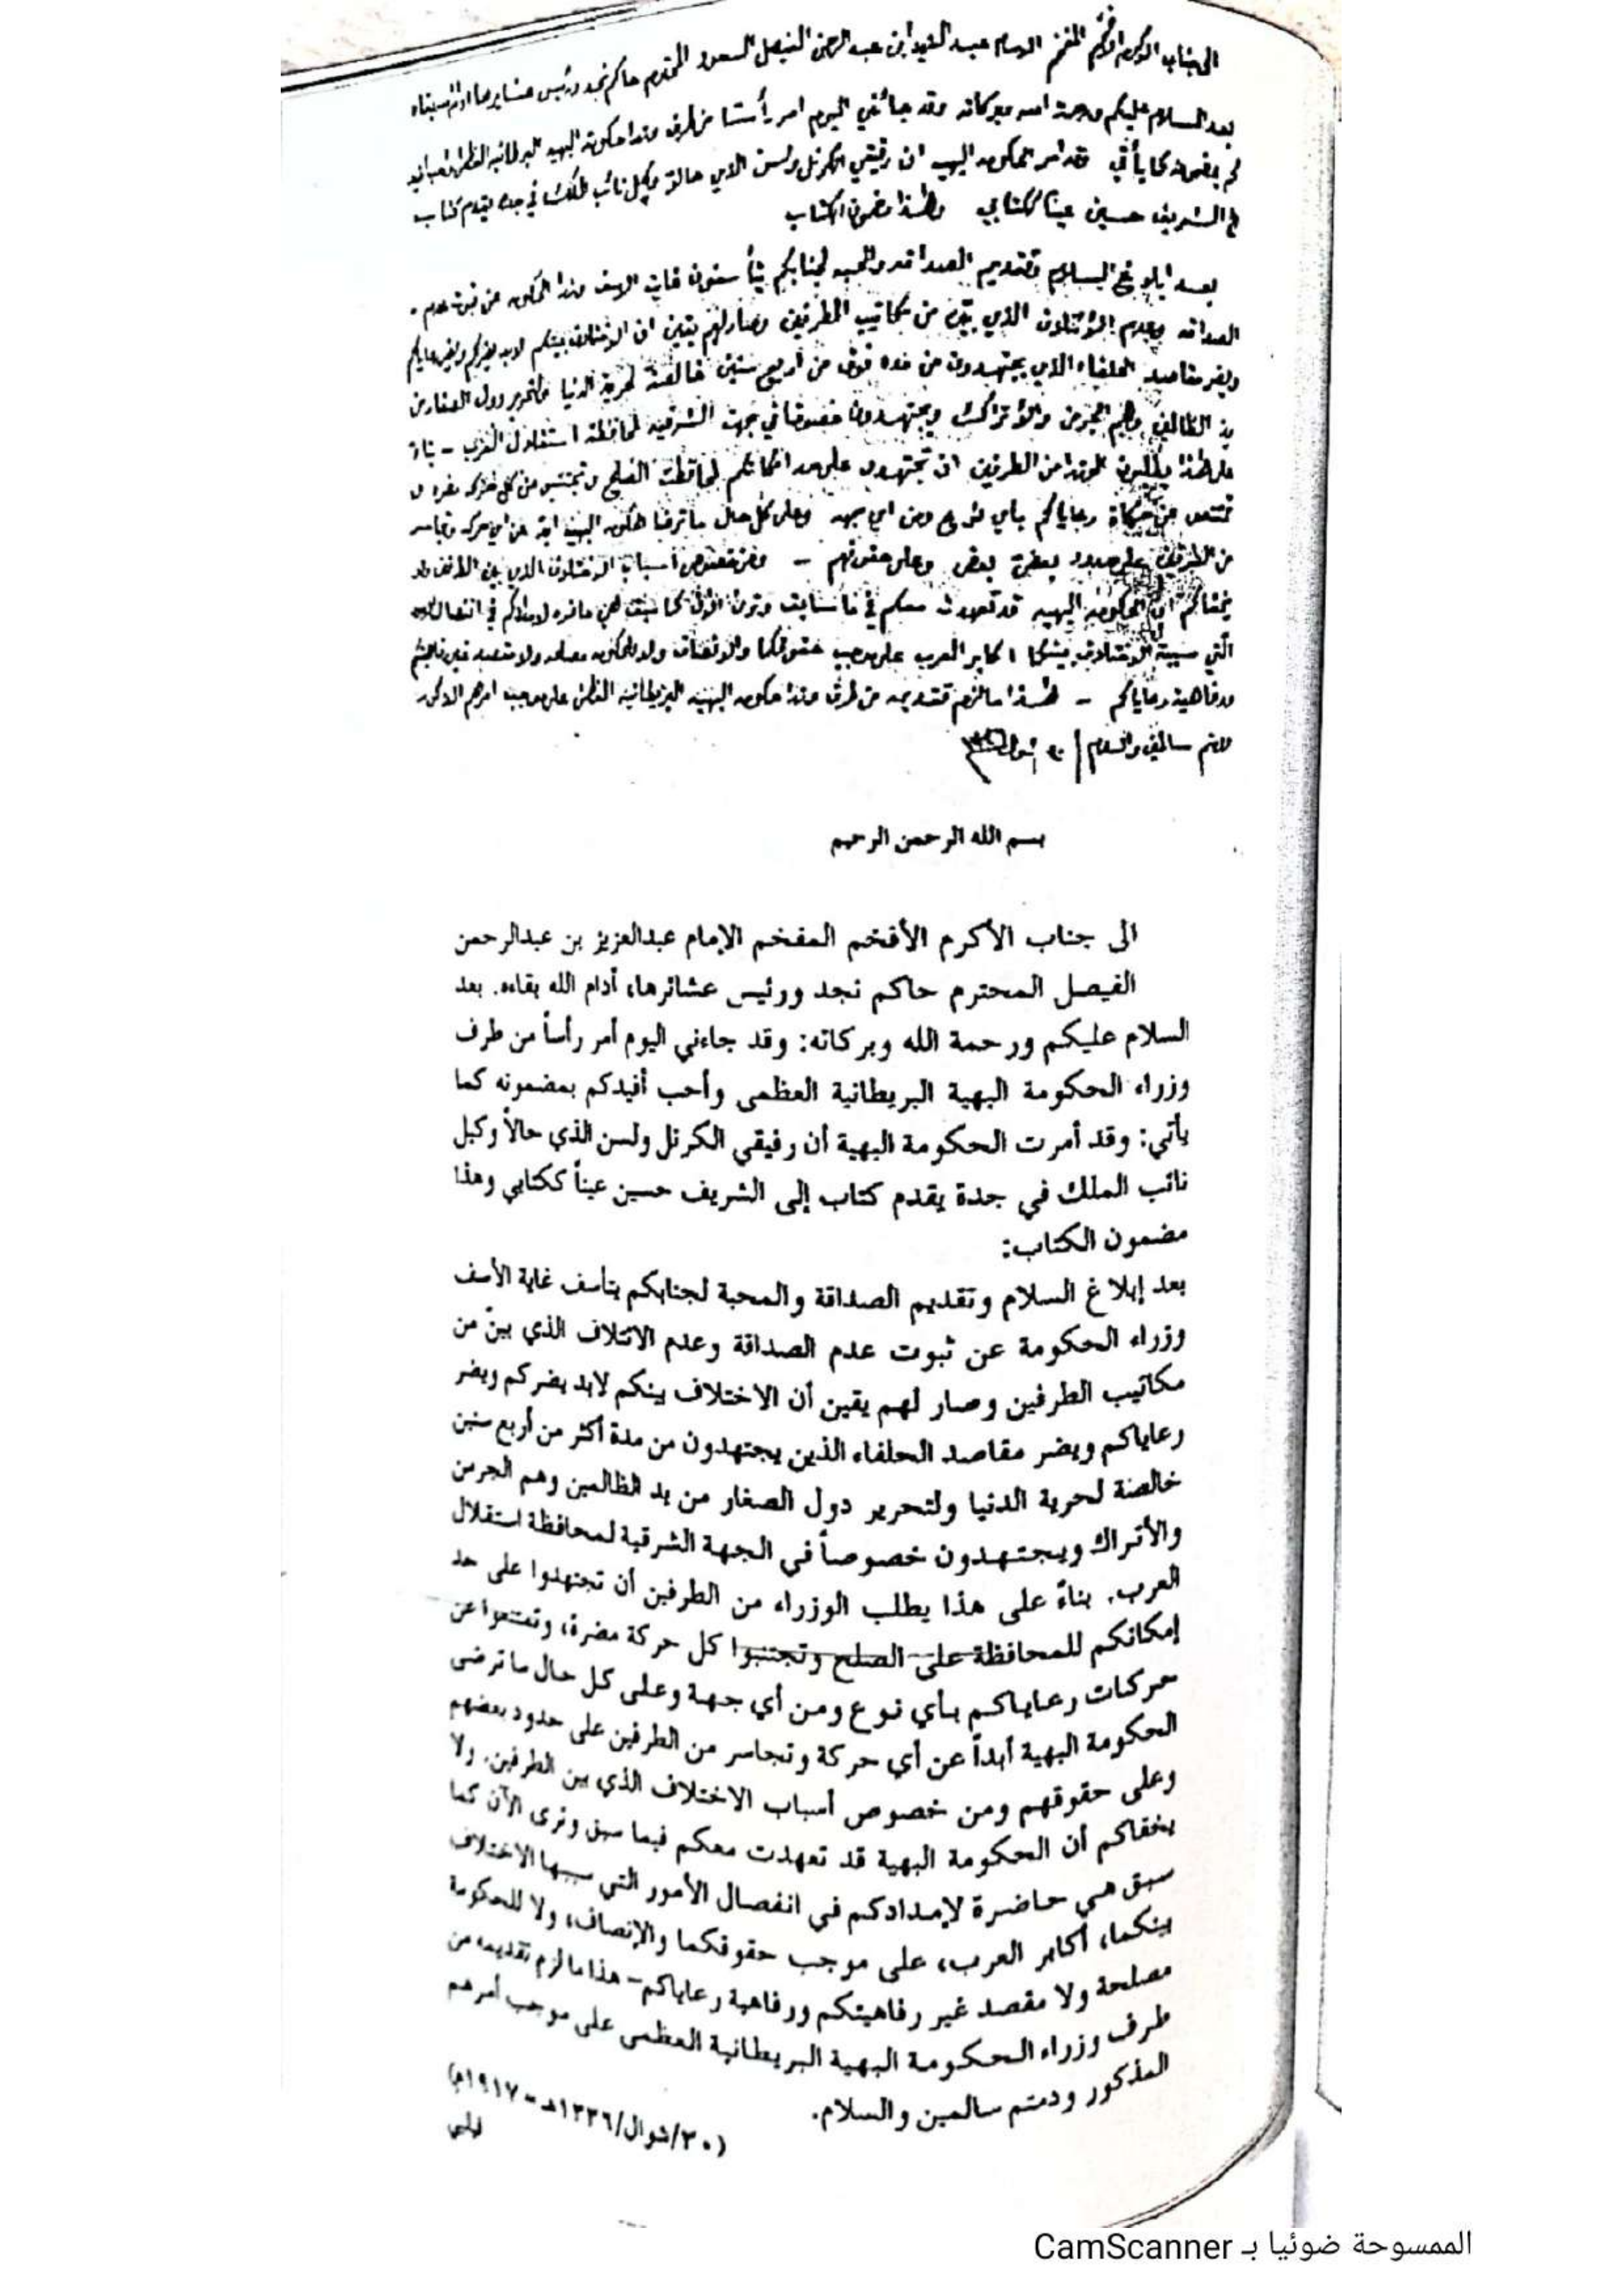 الى جناب الاكرم الافخم المفخم الامام عبد العزيز ابن عبد الرحمن الفيصل السعود المحترم حاكم نجد ورئيس عشايرها
بعد السلام عليكم ورحمة الله وبركاته وقد جائني اليوم امر رأستا من طرف حكومة البهيه البريطانيه العظمى
كم بمضمونه كما يأتي وقد امر الحكومه البهيه ان رفيقي الكرنل ولسن الذي حالا وكيل نائب الملك في جده يقدم كتاب
الشريف حسين عينا ككتابي وهذا مضمون الكتاب
بعد ايلاوغ السلام وتقديم الصداقه والمحبه لجنابكم غايت الاسف الحكومه عن ثبوت عدم
الصداقه وعدم الائتلاف الذي من مكاتيب الطرفين وصار لهم يقين ان الاختلاف بينكم لابد يضركم
ويضر مقاصد الحلفاء الذي يجتهدون من مده فوق من اربع سنين خالصة لحرية الدنيا دول الصغار من
يد الظالمين وهم الجرمن والاتراك ويجتهدون خصوصا في جهت الشرقيه لمحافظة استقلال العرب - بناء
على هذا يطلبون من الطرفين ان تجتهدون على حد امكانكم لمحافظت الصلح وتجتنبو من كل حركه مضره
رعاياكم باي نوع ومن اي جهه وعلى كل حال ما ترضا حكومه البهيه ابد عن اي حركه وتجاسر
من الطرفين على حدود بعض وعلى حقوقهم - ومن خصوص اسباب الاختلاف الذي بين الطرفين ولا
يخفاكم ان الحكومه البهيه قد تعهدت معكم في ما سابق وترى الآن كما سبق هي حاضره لامدادكم في انفصال
التي سببه الاختلاف بينكما اكابر العرب على موجب حقوقكما والانصاف ولا للحكومه مصلحه ولا مقصد
ورفاهية رعاياكم - هذا ما لزم تقديمه من طرف حكومه البهيه البريطانيه العظمى على موجب امرهم
سالمين والسلام / ٣٠ شوال ١٣٣٦
بسم الله الرحمن الرحيم
الى جناب الأكرم الأفخم المفخم الإمام عبدالعزيز بن عبدالرحمن
الفيصل المحترم حاكم نجد ورئيس عشائرها، أدام الله بقاءه. بعد
السلام عليكم ورحمة الله وبركاته: وقد جاءني اليوم أمر رأساً من طرف
وزراء الحكومة البهية البريطانية العظمى وأحب أفيدكم بمضمونه كما
يأتي: وقد أمرت الحكومة البهية أن رفيقي الكرنل ولسن الذي حالاً وكيل
نائب الملك في جدة يقدم كتاب إلى الشريف حسين عيناً ككتابي وهذا
مضمون الكتاب:
بعد إبلاغ السلام وتقديم الصداقة والمحبة لجنابكم يتأسف غاية الأسف
وزراء الحكومة عن ثبوت عدم الصداقة وعدم الائتلاف الذي بينّ من
مكاتيب الطرفين وصار لهم يقين أن الاختلاف بينكم لابد يضركم ويضر
رعاياكم ويضر مقاصد الحلفاء الذين يجتهدون من مدة أكثر من أربع سنين
خالصة لحرية الدنيا ولتحرير دول الصغار من يد الظالمين وهم الجرمن
والأتراك ويجتهدون خصوصاً في الجهة الشرقية لمحافظة استقلال
العرب. بناءً على هذا يطلب الوزراء من الطرفين أن تجتهدوا على حد
إمكانكم للمحافظة على الصلح وتجتنبوا كل حركة مضرة، وتمتنعوا عن
حركات رعاياكم بأي نوع ومن أي جهة وعلى كل حال ما ترضى
الحكومة البهية أبداً عن أي حركة وتجاسر من الطرفين على حدود بعضهم
وعلى حقوقهم ومن خصوص أسباب الاختلاف الذي بين الطرفين. ولا
يخفاكم أن الحكومة البهية قد تعهدت معكم فيما سبق وترى الآن كما
سبق هي حاضرة لإمدادكم في انفصال الأمور التي سببها الاختلاف
بينكما، أكابر العرب، على موجب حقوقكما والإنصاف، ولا للحكومة
مصلحة ولا مقصد غير رفاهيتكم ورفاهية رعاياكم - هذا ما لزم تقديمه من
طرف وزراء الحكومة البهية البريطانية العظمى على موجب أمرهم
المذكور ودمتم سالمين والسلام.
(٣٠/شوال/١٣٣٦هـ - ١٩١٧م)
فلبي
الممسوحة ضوئيا بـ CamScanner